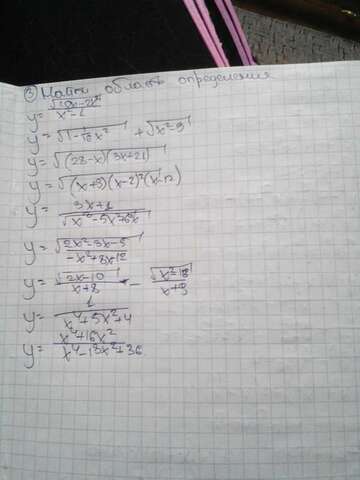 ③ Найти область определения
y = √(10x-2)/(x²-1)
y = √(1-16x²) + √(x²-9)
y = √((28-x)(3x+21))
y = √((x+3)(x-2)²(x-12))
y = (3x+1)/√(x³-5x²+6x)
y = √(2x²-3x-5)/(-x²+8x-12)
y = √(2x-10)/(x+8) - √(x²-18)/(x+9)
y = 1/(x⁴+5x²+4)
y = (x⁴+16x²)/(x⁴-13x²+36)